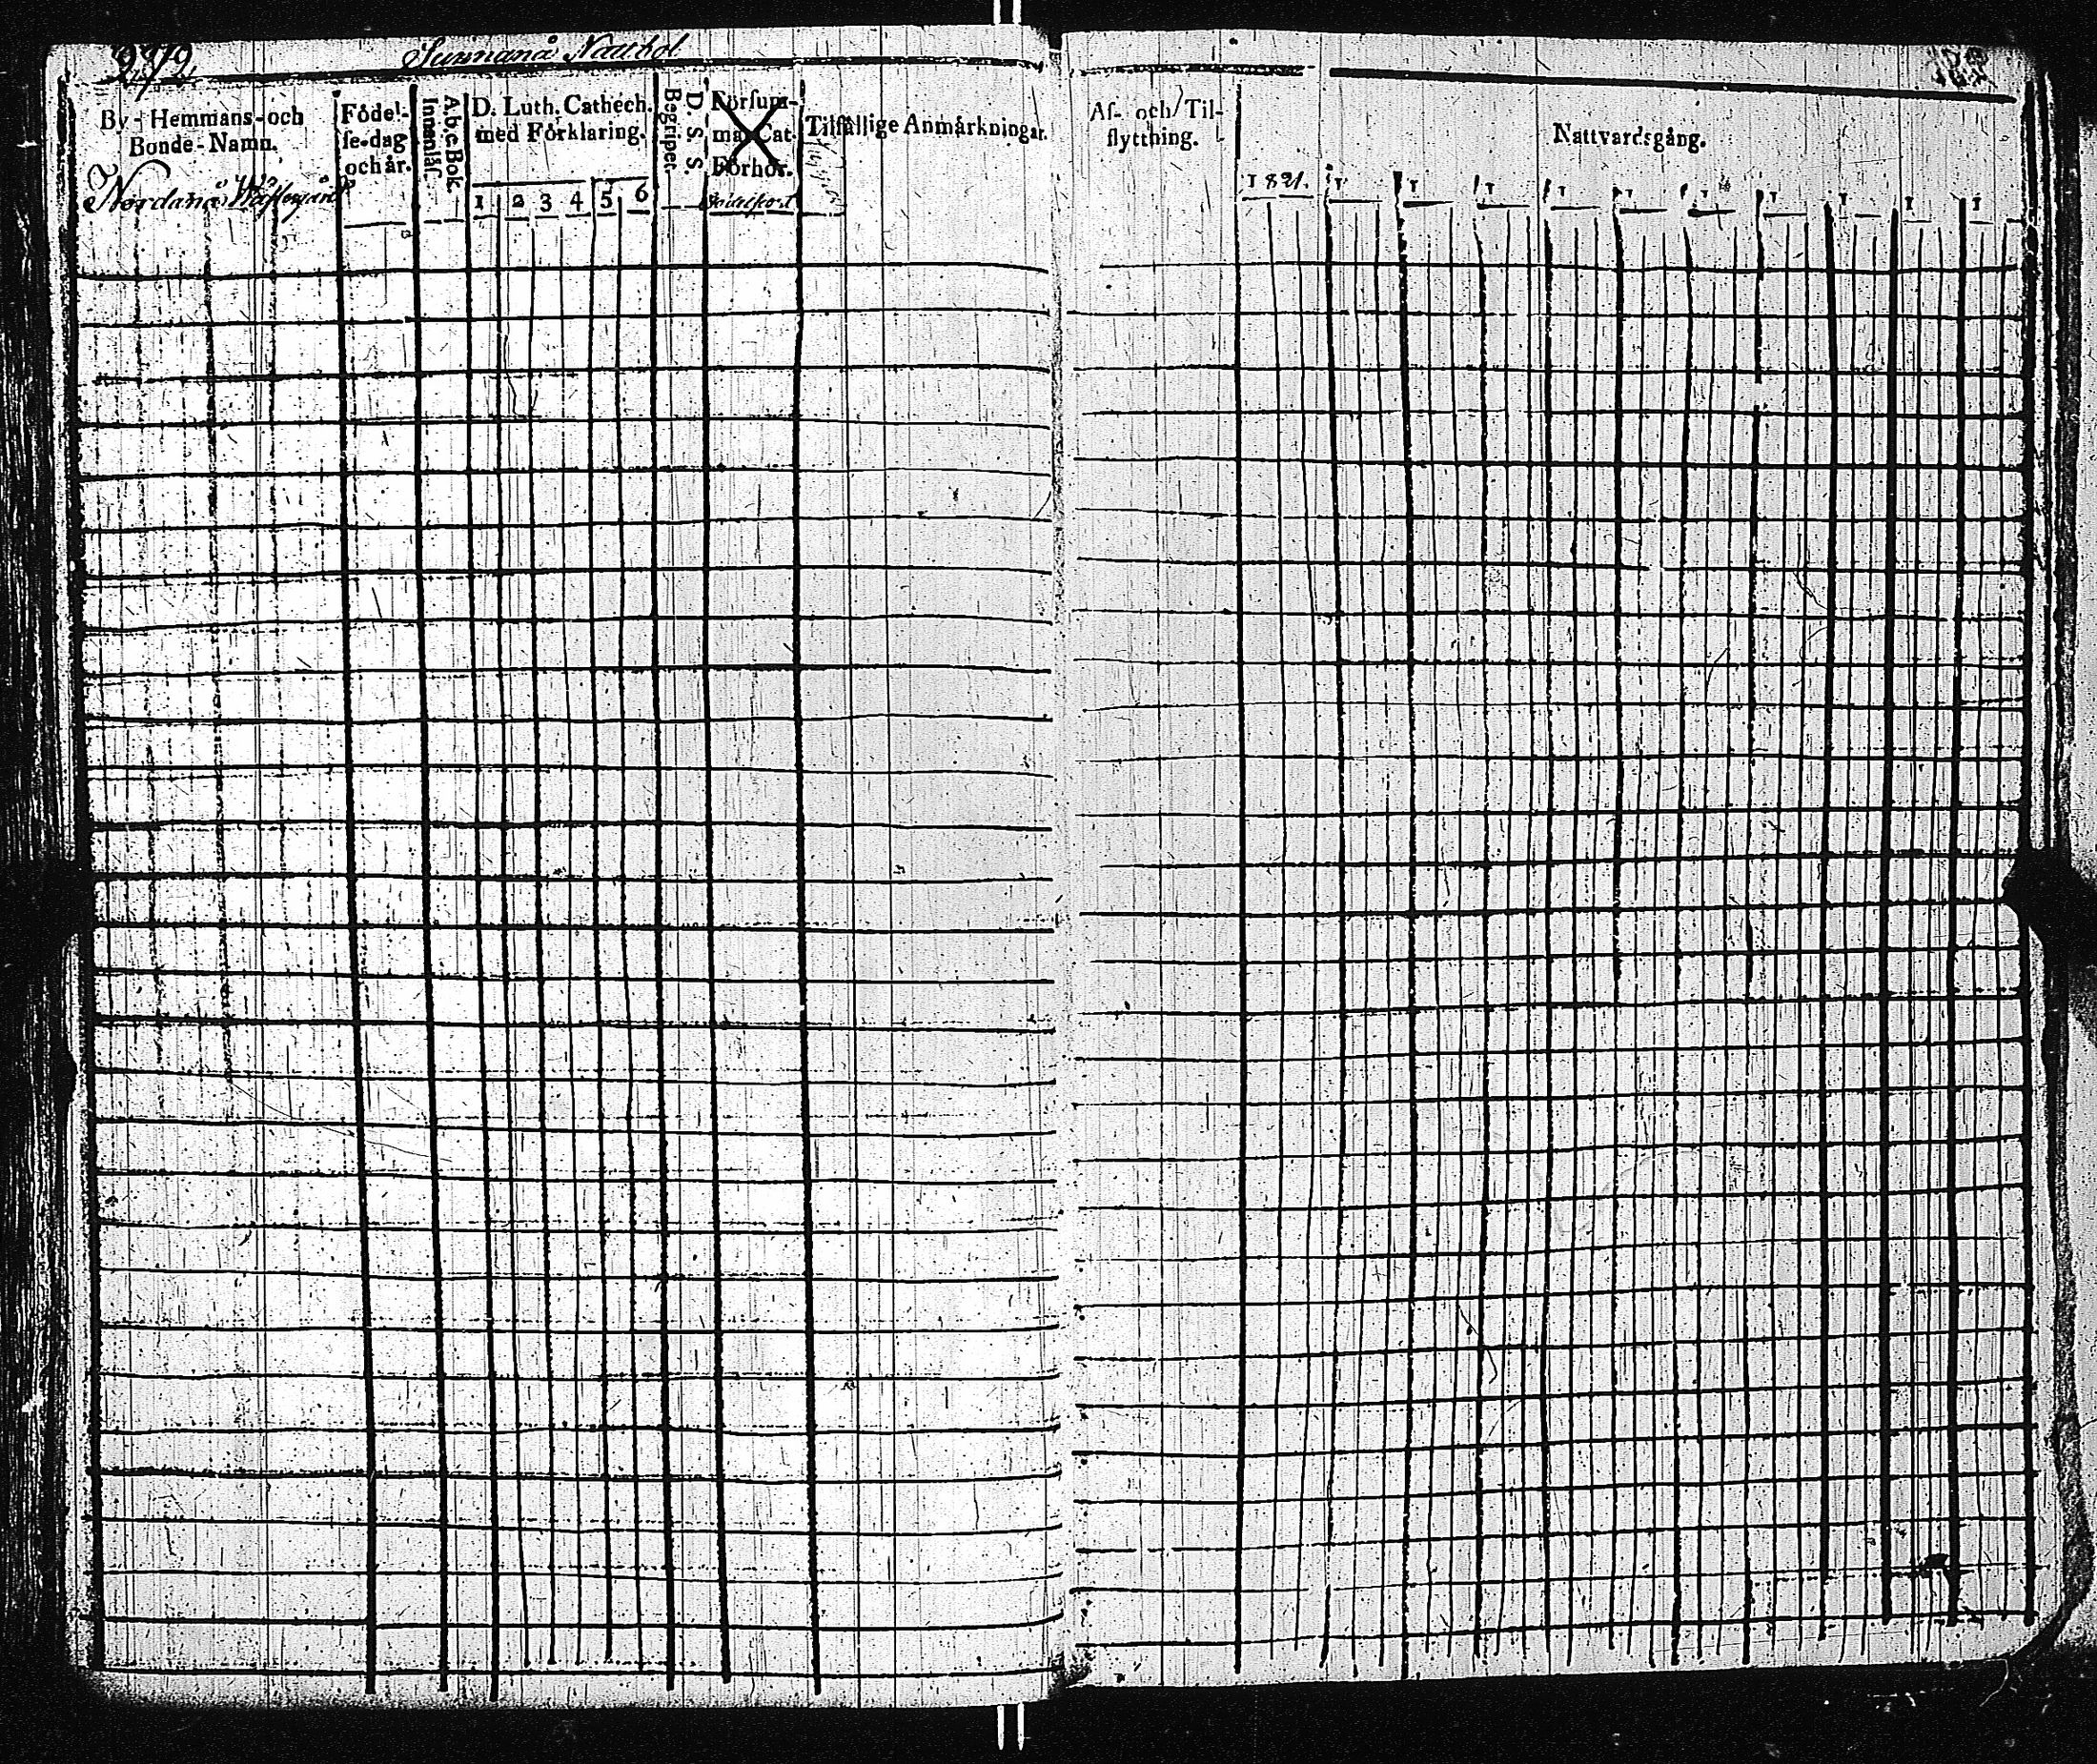 272
Sunnanå Nattbol
By- Hemmans- och
Bonde-Namn.
Nordanå Wästergård
Födel-
se-dag
och år.
A, b, c Bok
Innanläs.
D. Luth. Cathech.
med Förklaring.
1 2 3 4 5 6
D. S. S.
Begripet.
Försum-
ma Cat.
Förhör.
Tilfällige Anmärkningar.
Af- och Til-
flyttning.
Nattvardsgång.
1821. 1 1 1 1 1 1 1 1 1 1